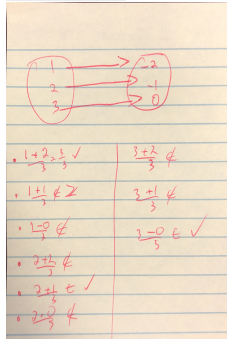 1 → -2
2 → -1
3 → 0
• 1+2/3 = 3/3 ✓
• 1+1/3 ∉ Z
• 1-0/3 ∉
• 2+2/3 ∉
• 2+1/3 ∈ ✓
• 2+0/3 ∉
3+2/3 ∉
3+1/3 ∉
3-0/3 ∈ ✓